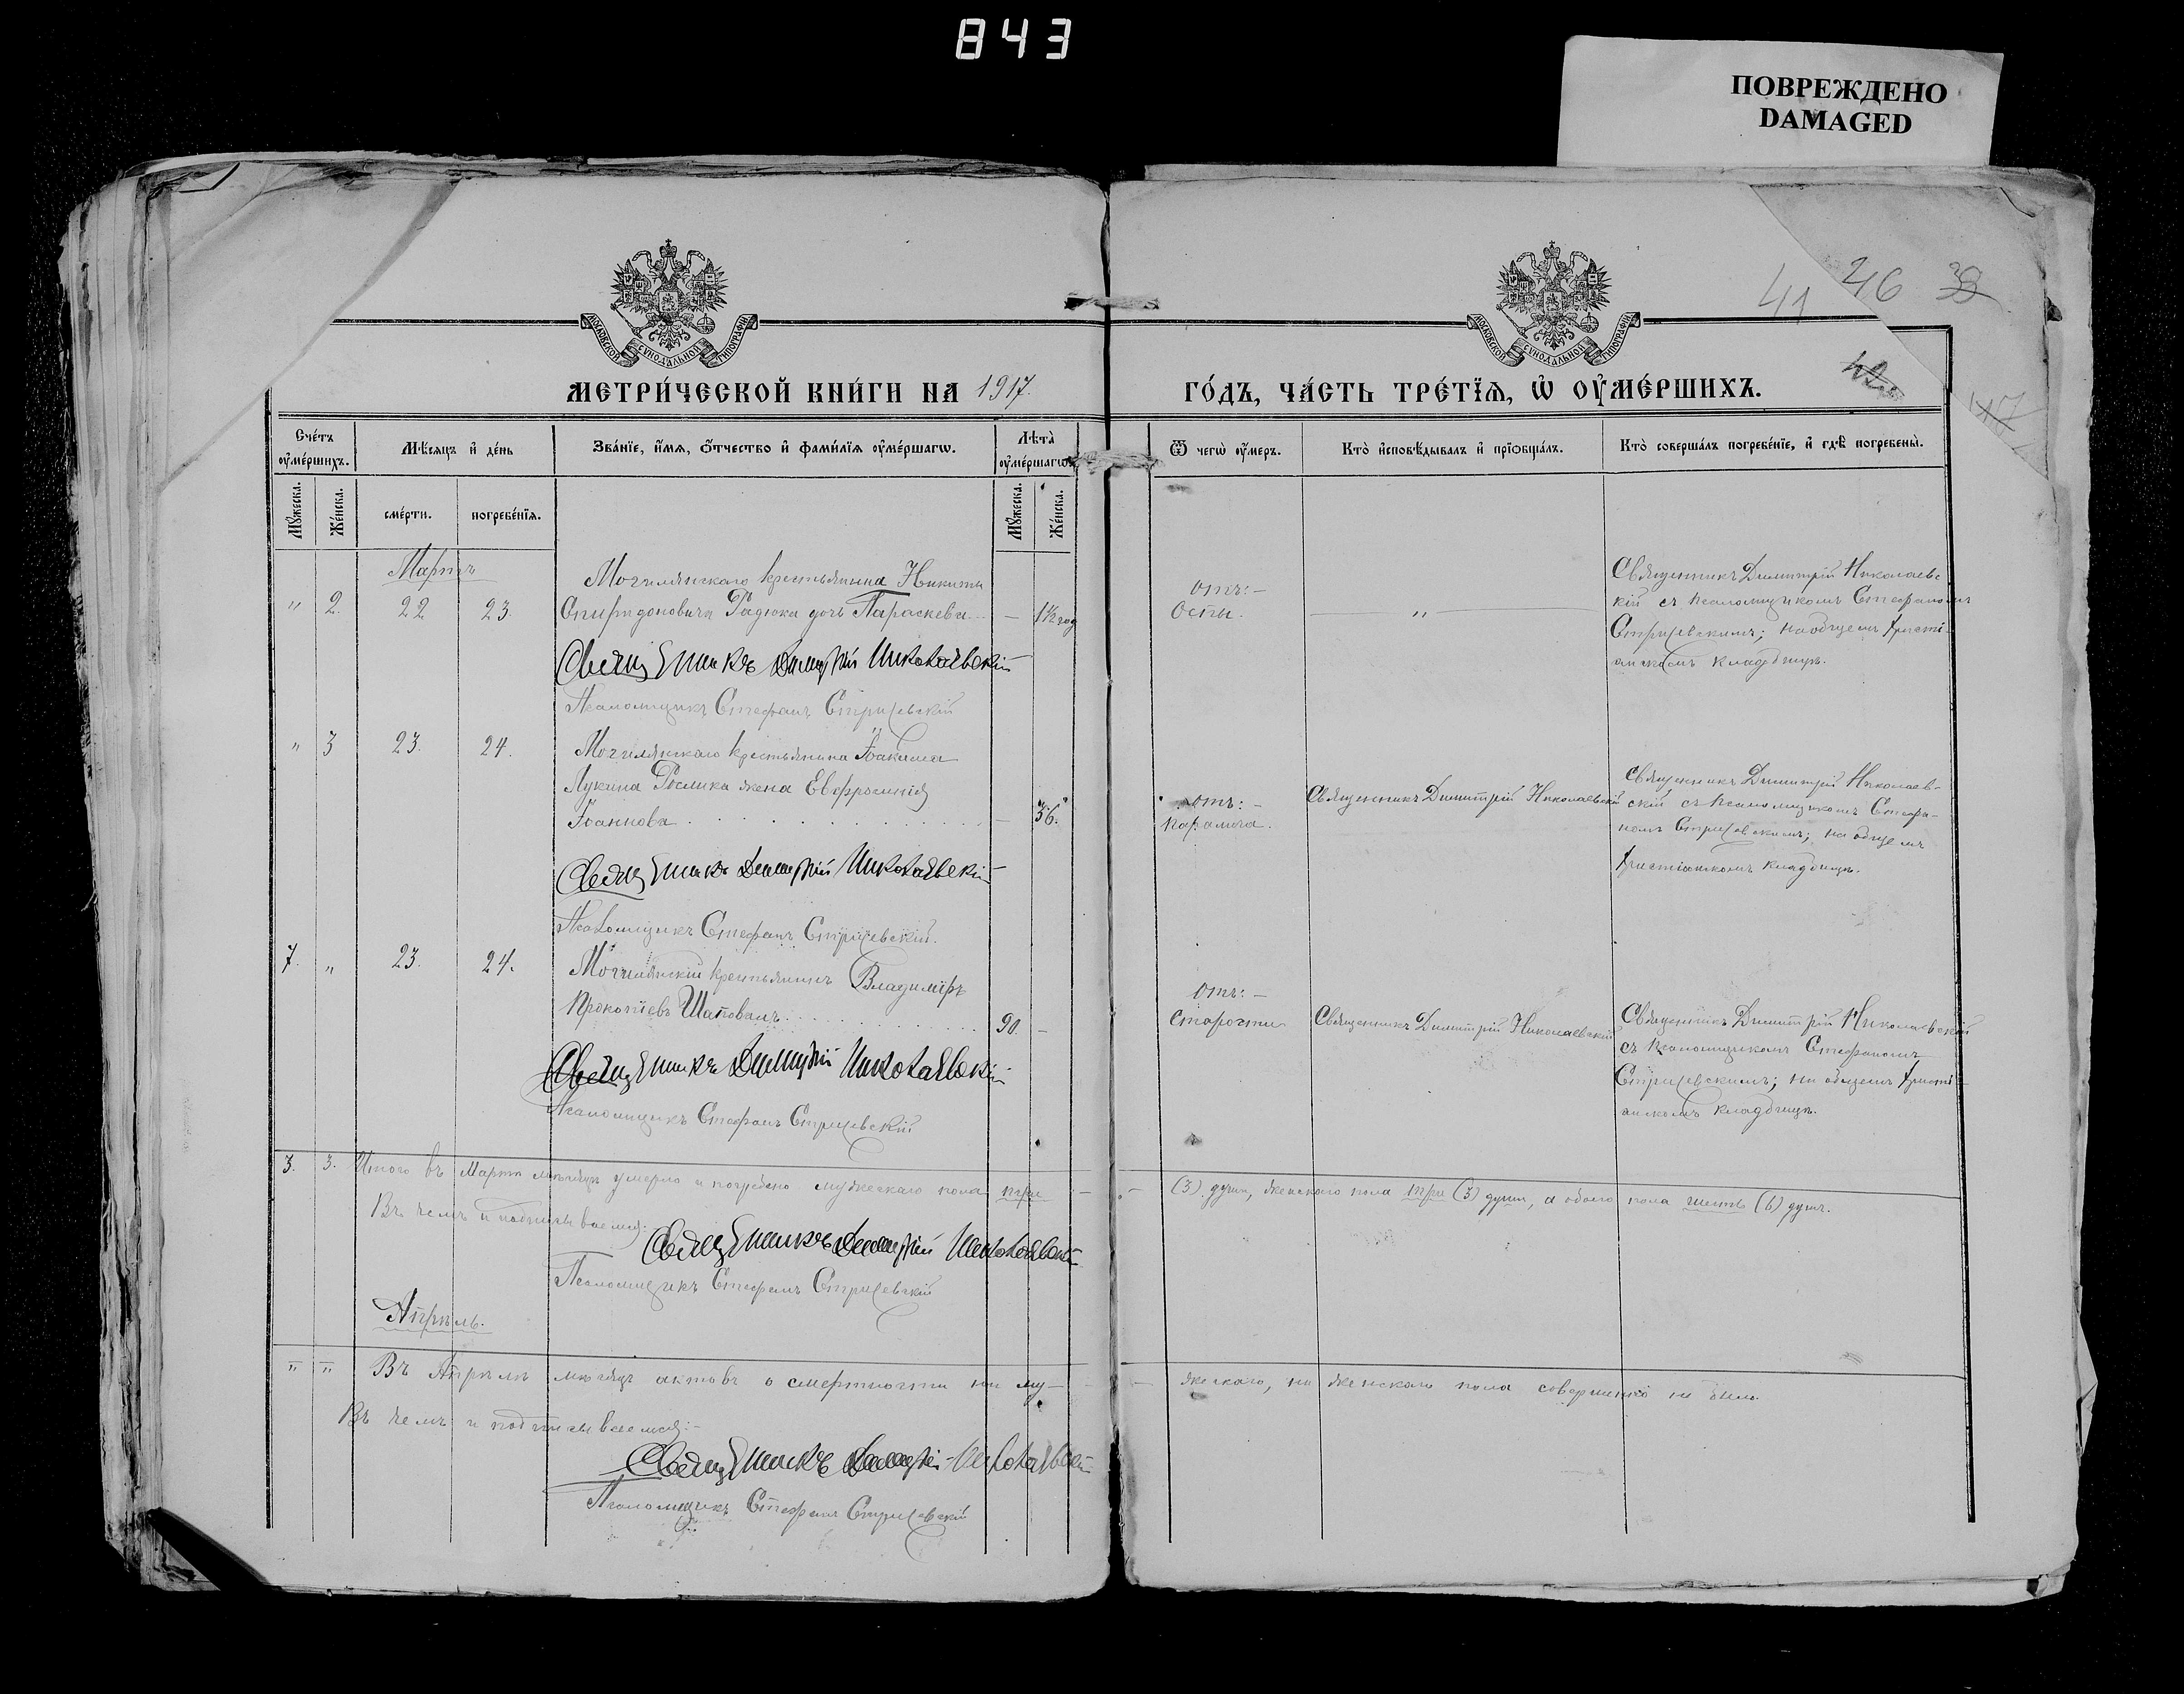 843
ПОВРЕЖДЕНО
DAMAGED
41 46 38
МОСКОВСКОЙ СѴНОДАЛЬНОЙ ТИПОГРАФІИ
МОСКОВСКОЙ СѴНОДАЛЬНОЙ ТИПОГРАФІИ
МЕТРИ́ЧЕСКОЙ КНИ́ГИ НА 1917.
ГО́ДЪ, ЧА́СТЬ ТРЕ́ТЇѦ, Ѡ ОУ҆МЕ́РШИХЪ.
Сче́тъ оу҆ме́ршихъ.
Мѣ́сяцъ и҆ де́нь
Зва́нїе, и҆́мя, ѻ҆́тчество и҆ фами́лїя оу҆ме́ршагѡ.
Лѣ́та оу҆ме́ршагѡ.
Ѿ чегѡ̀ оу҆́меръ.
Кто̀ и҆сповѣ́дывалъ и҆ прїѻбща́лъ.
Кто̀ соверша́лъ погребе́нїе, и҆ гдѣ̀ погребены̀.
Мꙋ́жеска.
Же́нска.
сме́рти.
погребе́нїя.
Мꙋ́жеска.
Же́нска.
Мартъ
" 2. 22 23.
Могилянскаго крестьянина Никиты
Спиридоновича Радюка дочь Параскева - 1½ год
Священникъ Димитрій Николаевскій
Псаломщикъ Стефанъ
отъ:-
Оспы.
"
Священникъ Димитрій Николаевс
кій съ псаломщикомъ Стефаномъ
на общемъ христі-
анскомъ кладбищѣ.
" 3 23. 24.
Могилянскаго крестьянина Іоакима
Лукина жена Евфросинія
Іоаннова - 36.
Священникъ Димитрій Николаевскій
Псаломщикъ Стефанъ
отъ:-
паралича.
Священникъ Димитрій Николаевскій
Священникъ Димитрій Николаев-
скій съ псаломщикомъ Стефа-
номъ на общемъ
христіанскомъ кладбищѣ.
7. " 23. 24.
Могилянскій крестьянинъ Владиміръ
Прокопіевъ Шаповалъ 90. -
Священникъ Димитрій Николаевскій
Псаломщикъ Стефанъ
отъ:-
Старости
Священникъ Димитрій Николаевскій
Священникъ Димитрій Николаевскій
съ псаломщикомъ Стефаномъ
на общемъ христі-
анскомъ кладбищѣ.
3. 3. Итого въ Мартѣ мѣсяцѣ умерло и погребено мужескаго пола три
(3) души, женскаго пола три (3) души, а обоего пола шесть (6) душъ.
Въ чемъ и подписываемся:
Священникъ Димитрій Николаевскій
Псаломщикъ Стефанъ
Апрѣль.
" " Въ Апрѣлѣ мѣсяцѣ актовъ о смертности ни му-
жескаго, ни женскаго пола совершено не было.
Въ чемъ и подписываемся:-
Священникъ Димитрій Николаевскій
Псаломщикъ Стефанъ